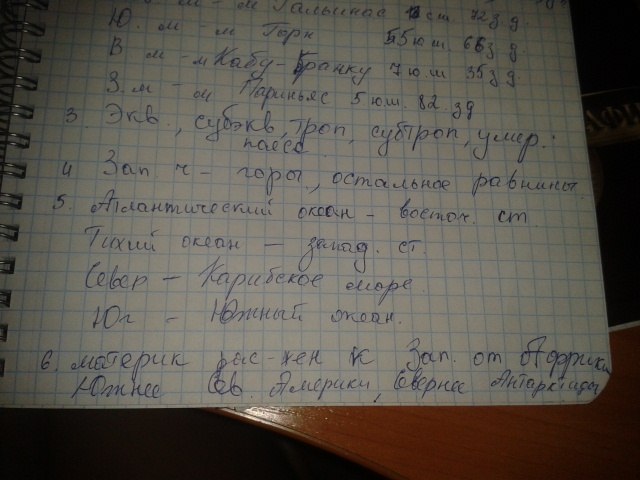 м - м Гальинас 12 ст. 72 з д.
Ю. м - м Горн 55 ю ш. 66 з д.
В м - м Кабу-Бранку 7 ю ш 35 з д.
З. м - м Париньяс 5 ю ш. 82 зд
3. Экв., субэкв, троп, субтроп, умер.
пояса
4 Зап ч - горы, остальное равнины.
5. Атлантический океан - восточ. ст.
Тихий океан - запад. ст.
Север - Карибское море.
Юг - Южный океан.
6. материк рас-жен к Зап. от Африки
Южнее Св. Америки, Севернее Антарктиды